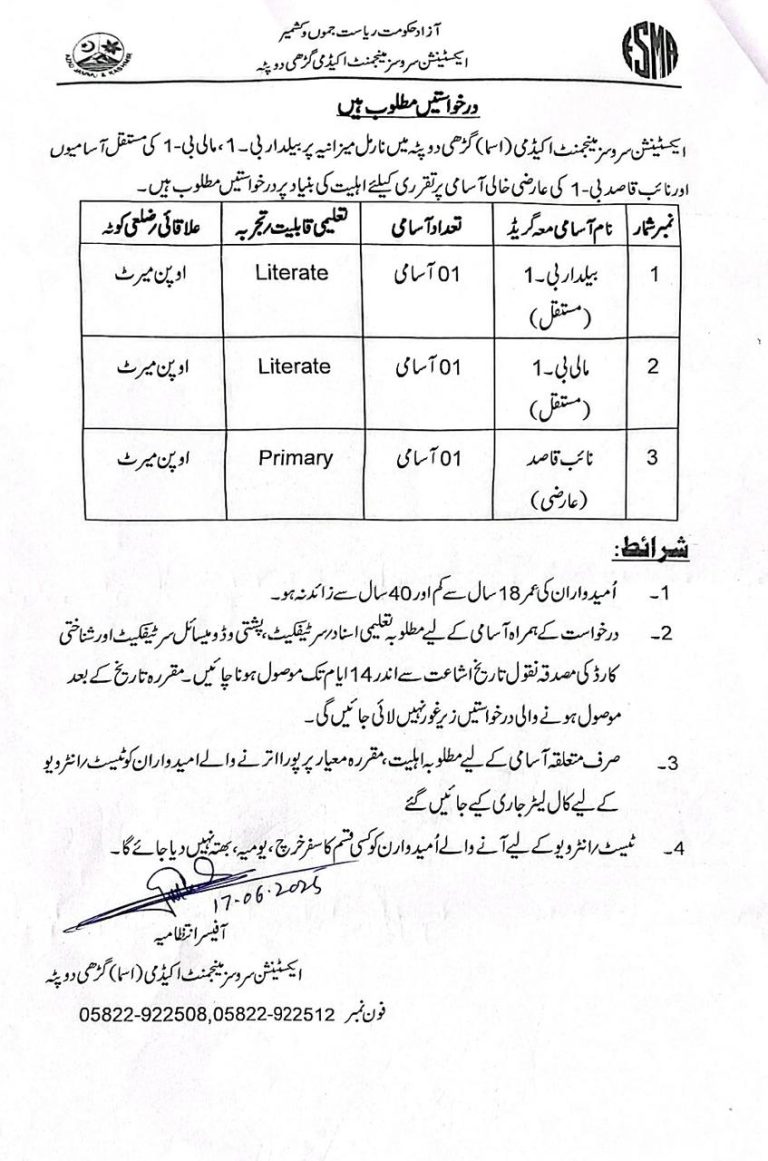 آزاد حکومت ریاست جموں و کشمیر
ایکسٹینشن سروسز مینجمنٹ اکیڈمی گڑھی دوپٹہ
AZAD JAMMU & KASHMIR
ESMA
درخواستیں مطلوب ہیں
ایکسٹینشن سروسز مینجمنٹ اکیڈمی (اسما) گڑھی دوپٹہ میں نارمل میزانیہ پر بیلدار بی۔1، مالی بی-1 کی مستقل آسامیوں
اور نائب قاصد بی-1 کی عارضی خالی آسامی پر تقرری کیلئے اہلیت کی بنیاد پر درخواستیں مطلوب ہیں۔
نمبر شمار نام آسامی معہ گریڈ تعداد آسامی تعلیمی قابلیت/تجربہ علاقائی/ضلعی کوٹہ
1 بیلدار بی۔1 01 آسامی Literate اوپن میرٹ
(مستقل)
2 مالی بی۔1 01 آسامی Literate اوپن میرٹ
(مستقل)
3 نائب قاصد 01 آسامی Primary اوپن میرٹ
(عارضی)
شرائط:
1۔ اُمیدواران کی عمر 18 سال سے کم اور 40 سال سے زائد نہ ہو۔
2۔ درخواست کے ہمراہ آسامی کے لیے مطلوبہ تعلیمی اسناد/سرٹیفکیٹ، پشتنی و ڈومیسائل سرٹیفکیٹ اور شناختی
کارڈ کی مصدقہ نقول تاریخ اشاعت سے اندر 14 ایام تک موصول ہونا چائیں۔ مقررہ تاریخ کے بعد
موصول ہونے والی درخواستیں زیر غور نہیں لائی جائیں گی۔
3۔ صرف متعلقہ آسامی کے لیے مطلوبہ اہلیت، مقررہ معیار پر پورا اترنے والے امیدواران کو ٹیسٹ/انٹرویو
کے لیے کال لیٹر جاری کیے جائیں گئے
4۔ ٹیسٹ/انٹرویو کے لیے آنے والے اُمیدوارن کو کسی قسم کا سفر خرچ، یومیہ، بھتہ نہیں دیا جائے گا۔
17-06-2025
آفیسر انتظامیہ
ایکسٹینشن سروسز مینجمنٹ اکیڈمی (اسما) گڑھی دوپٹہ
فون نمبر 05822-922508,05822-922512